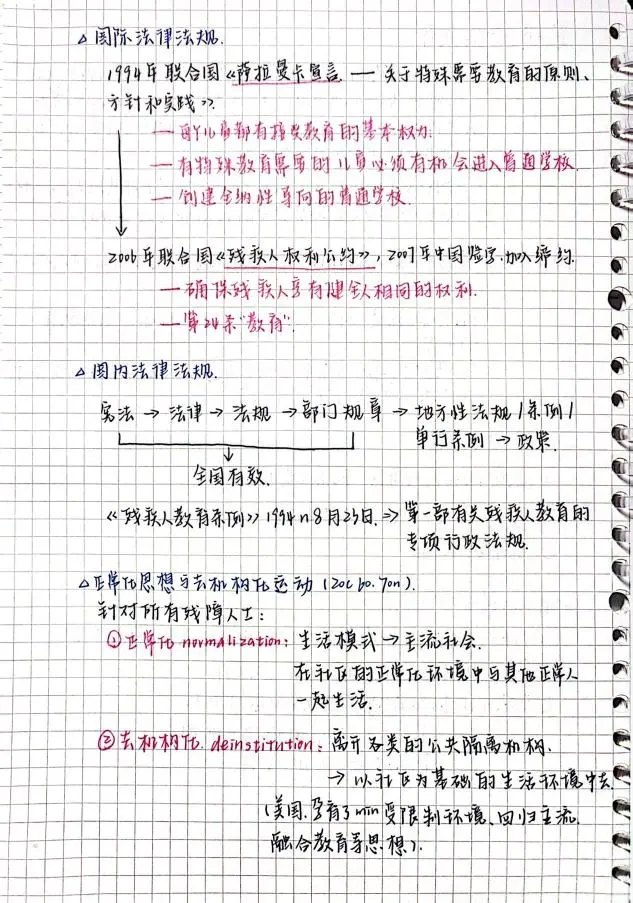 △ 国际法律法规.
1994年 联合国《萨拉曼卡宣言 — 关于特殊需要教育的原则、
方针和实践》.
— 每个儿童都有接受教育的基本权力.
— 有特殊教育需要的儿童必须有机会进入普通学校.
— 创建全纳性导向的普通学校.
2006年联合国《残疾人权利公约》, 2007年中国签字.加入缔约.
— 确保残疾人享有健全人相同的权利.
— 第24条"教育".
△ 国内法律法规.
宪法 → 法律 → 法规 → 部门规章 → 地方性法规/条例/
单行条例 → 政策.
全国有效.
《残疾人教育条例》1994n.8月23日. ⇒ 第一部有关残疾人教育的
专项行政法规.
△正常化思想与去机构化运动 (20c 60.70n).
针对所有残障人士:
①正常化 normalization: 生活模式 → 主流社会.
在社区的正常化环境中与其他正常人
一起生活.
②去机构化. deinstitution: 离开各类的公共隔离机构.
→ 以社区为基础的生活环境中去.
(美国.孕育了min受限制环境、回归主流.
融合教育等思想).